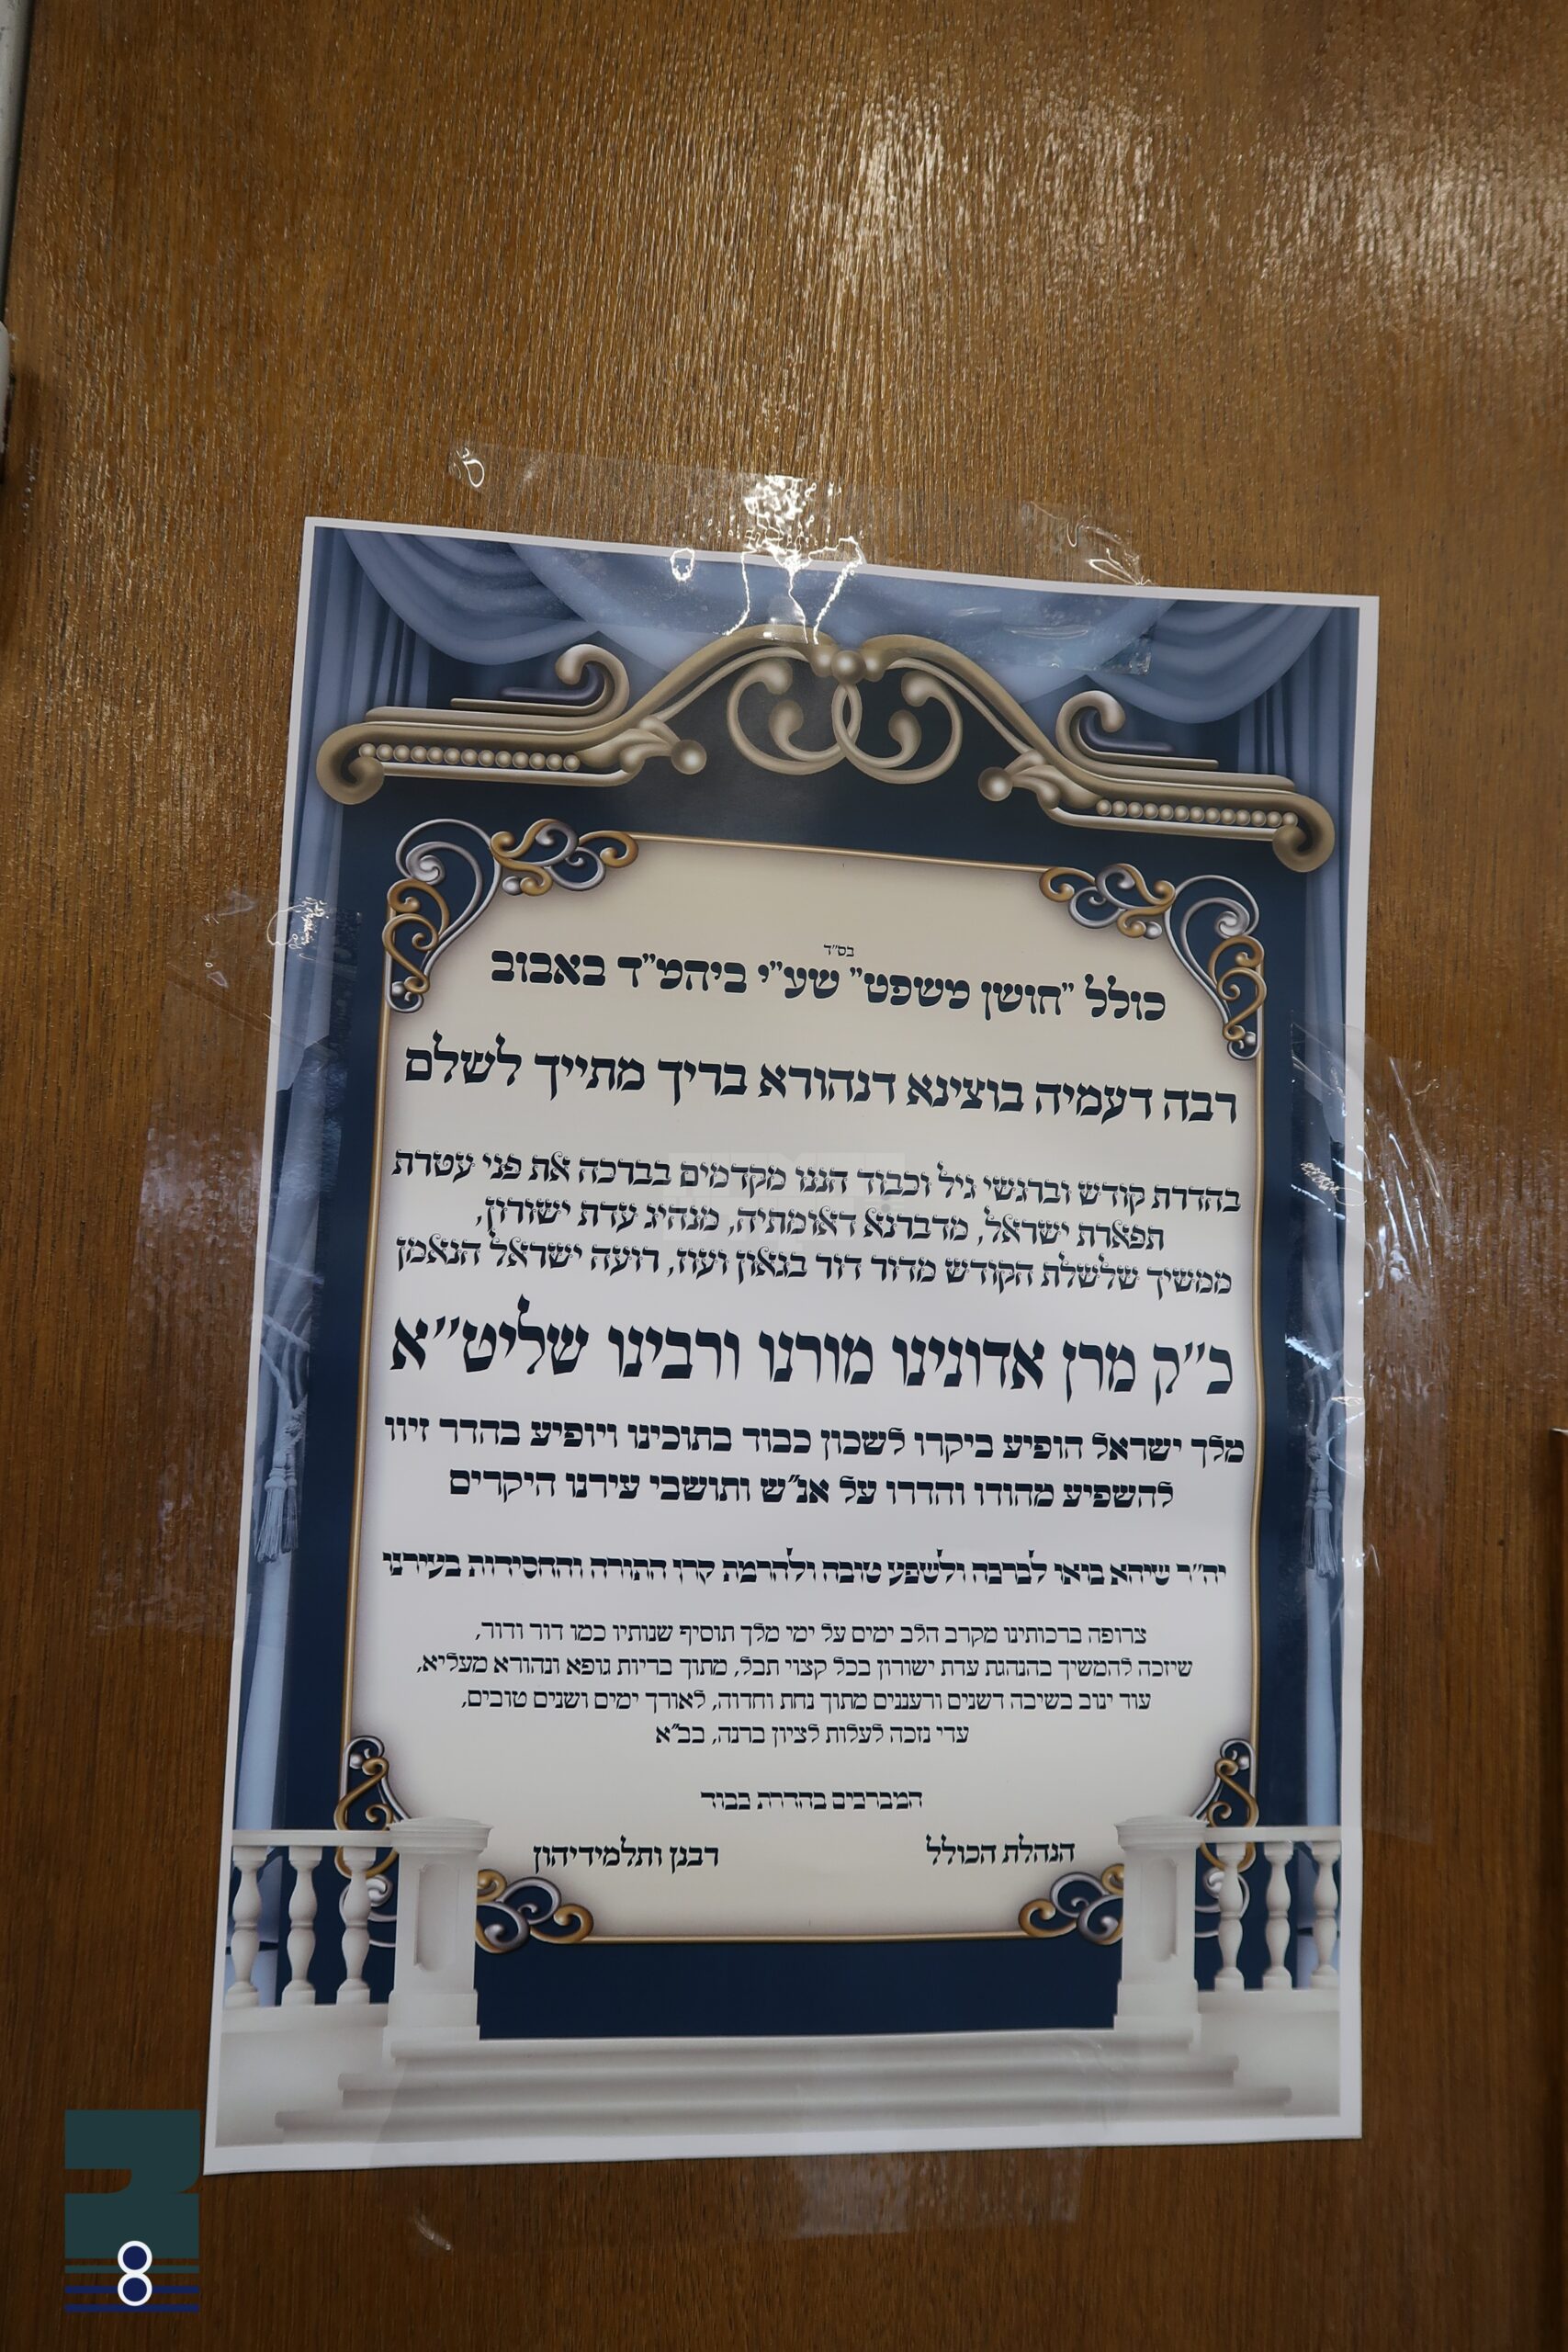 בס״ד
כולל "חושן משפט" שע״י ביהמ״ד באבוב
רבה דעמיה בוצינא דנהורא בריך מתייך לשלם
בהדרת קודש וברגשי גיל וכבוד הננו מקדמים בברכה את פני עטרת
תפארת ישראל, מדברנא דאומתיה, מנהיג עדת ישורון,
ממשיך שלשלת הקודש מדור דור בגאון ועוז, רועה ישראל הנאמן
כ״ק מרן אדונינו מורנו ורבינו שליט״א
מלך ישראל הופיע ביקרו לשכון כבוד בתוכינו ויופיע בהדר זיוו
להשפיע מהודו והדרו על אנ״ש ותושבי עירנו היקרים
יה״ר שיהא בואו לברכה ולשפע טובה ולהרמת קרן התורה והחסידות בעירנו
צרופה ברכותינו מקרב הלב ימים על ימי מלך תוסיף שנותיו כמו דור ודור,
שיזכה להמשיך בהנהגת עדת ישורון בכל קצוי תבל, מתוך בריות גופא ונהורא מעליא,
עוד ינוב בשיבה דשנים ורעננים מתוך נחת וחדוה, לאורך ימים ושנים טובים,
עדי נזכה לעלות לציון ברנה, בב״א
המברכים בהדרת כבוד
הנהלת הכולל
רבנן ותלמידיהון
8